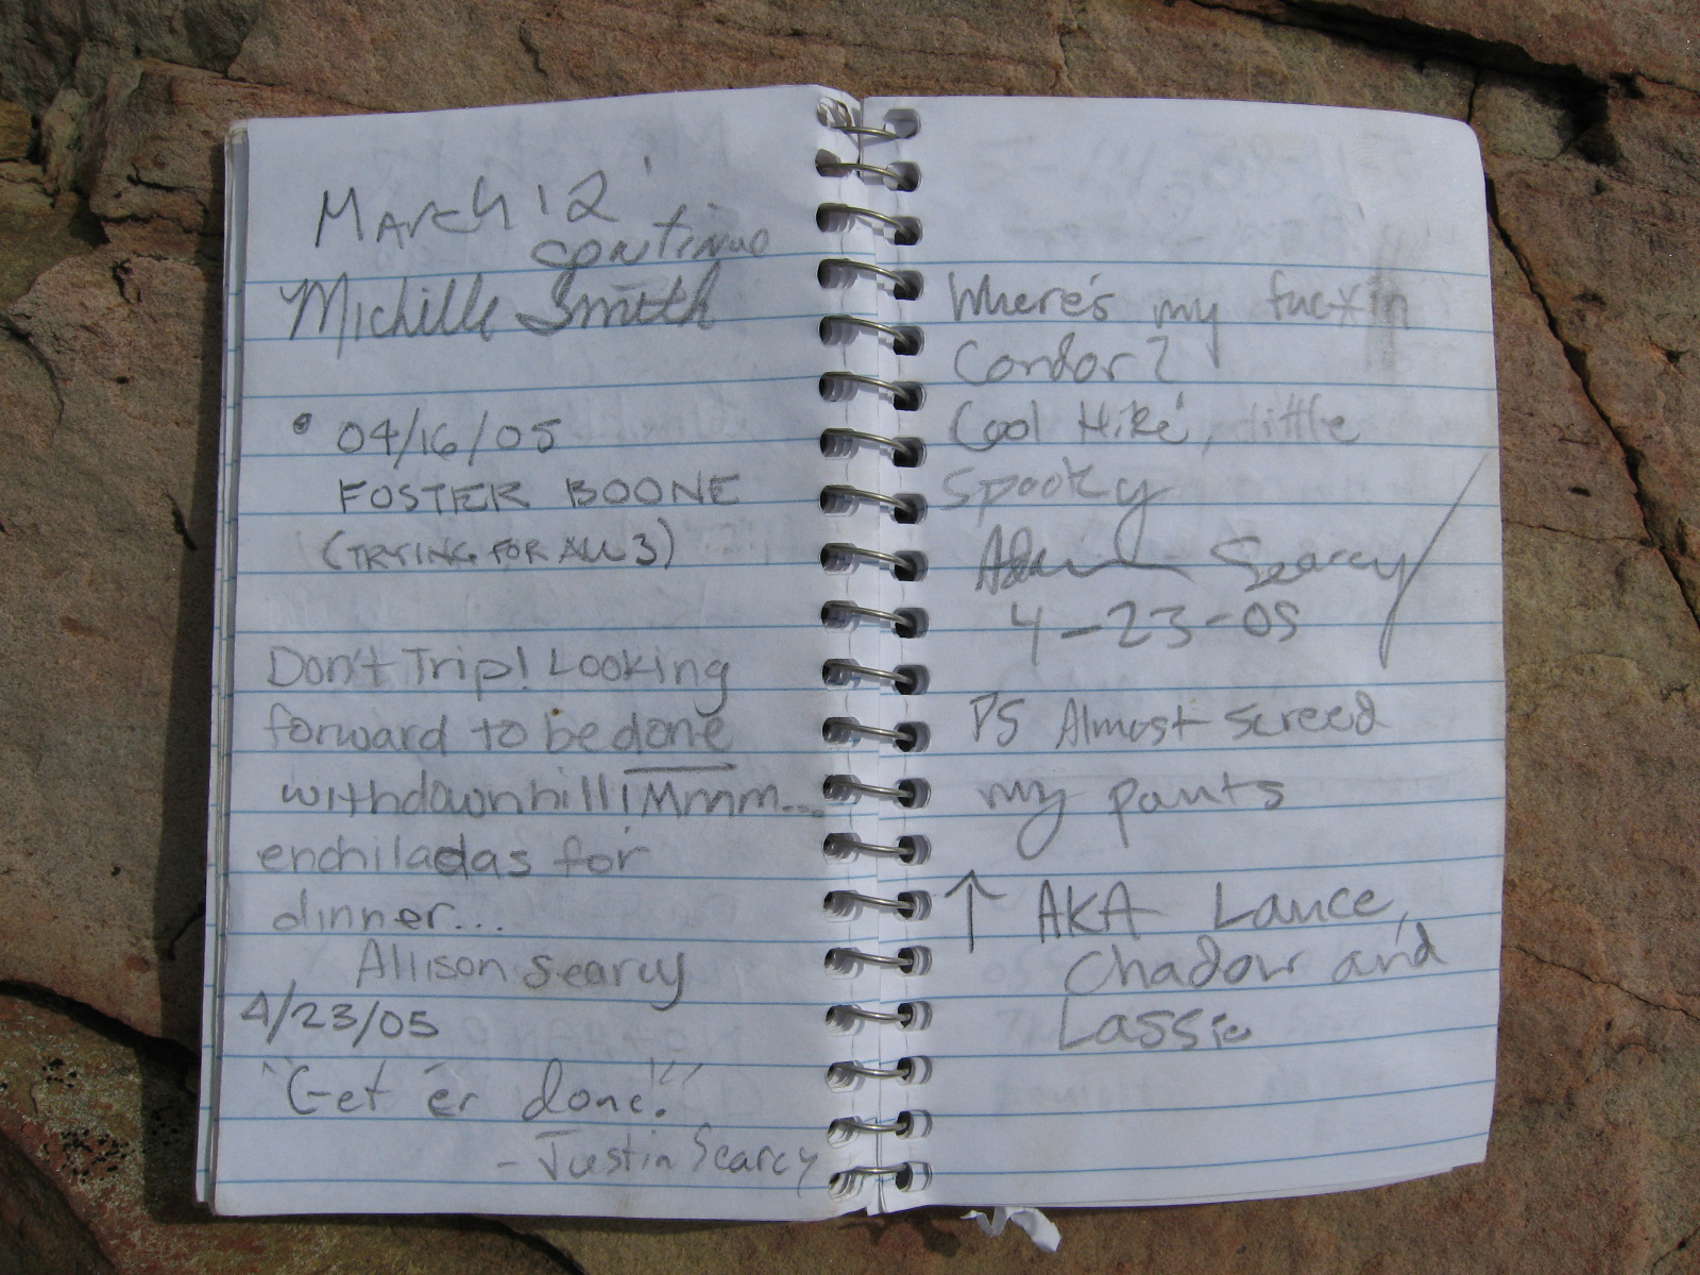 March 12
continue
Michille Smith
• 04/16/05
FOSTER BOONE
(TRYING FOR ALL 3)
Don't Trip! Looking
forward to be done
with downhill! Mmmm...
enchiladas for
dinner...
Allison Searcy
4/23/05
"Get 'er done!"
- Justin Searcy
Where's my fuckin
Condor?
Cool Hike, little
Spooky
Adam Searcy
4-23-05
PS Almost screed
my pants
↑ AKA Lance,
Chadow and
Lassie